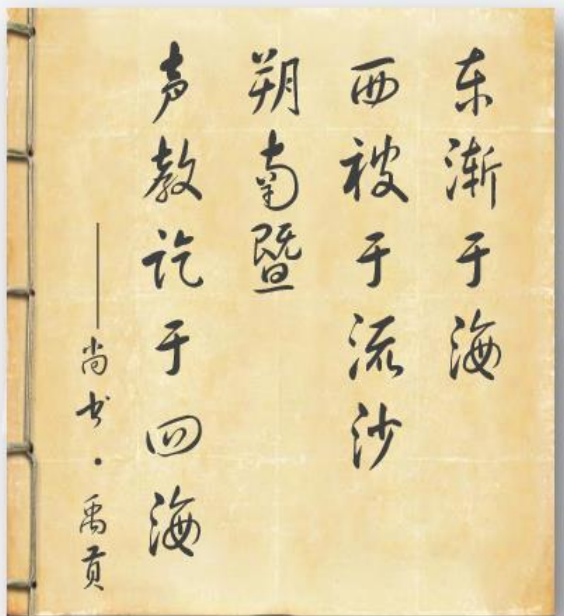 东渐于海
西被于流沙
朔南暨
声教讫于四海
——尚书·禹贡